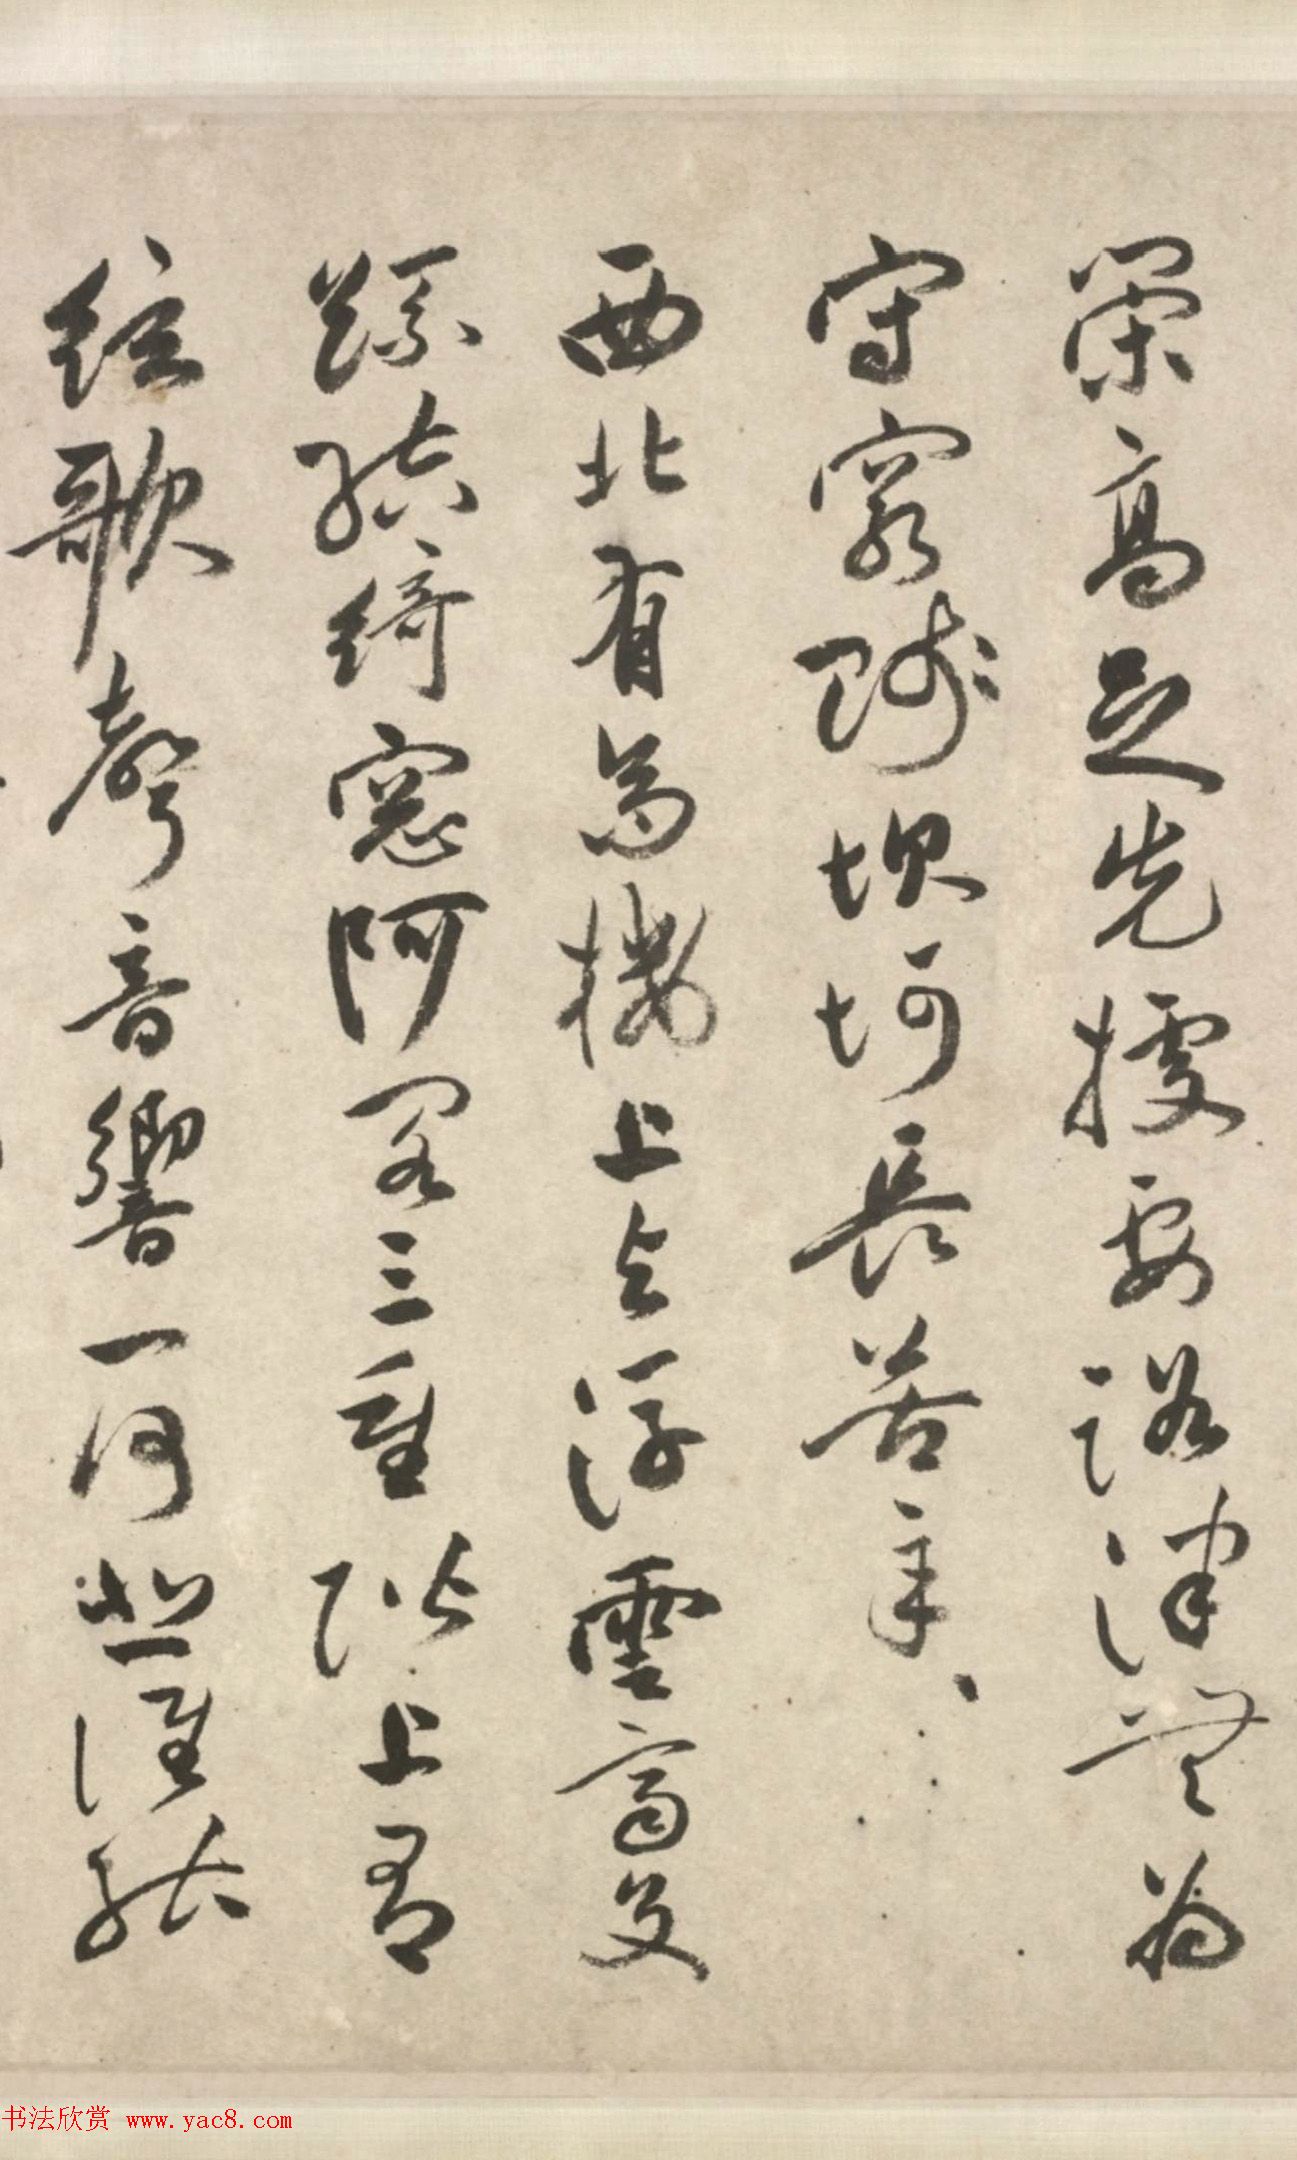 策高足先據要路津無為
守窮賤坎坷長苦辛
西北有高樓上與浮雲齊交
疏結綺窓阿閣三重階上有
絃歌聲音響一何悲誰能
书法欣赏 www.yac8.com